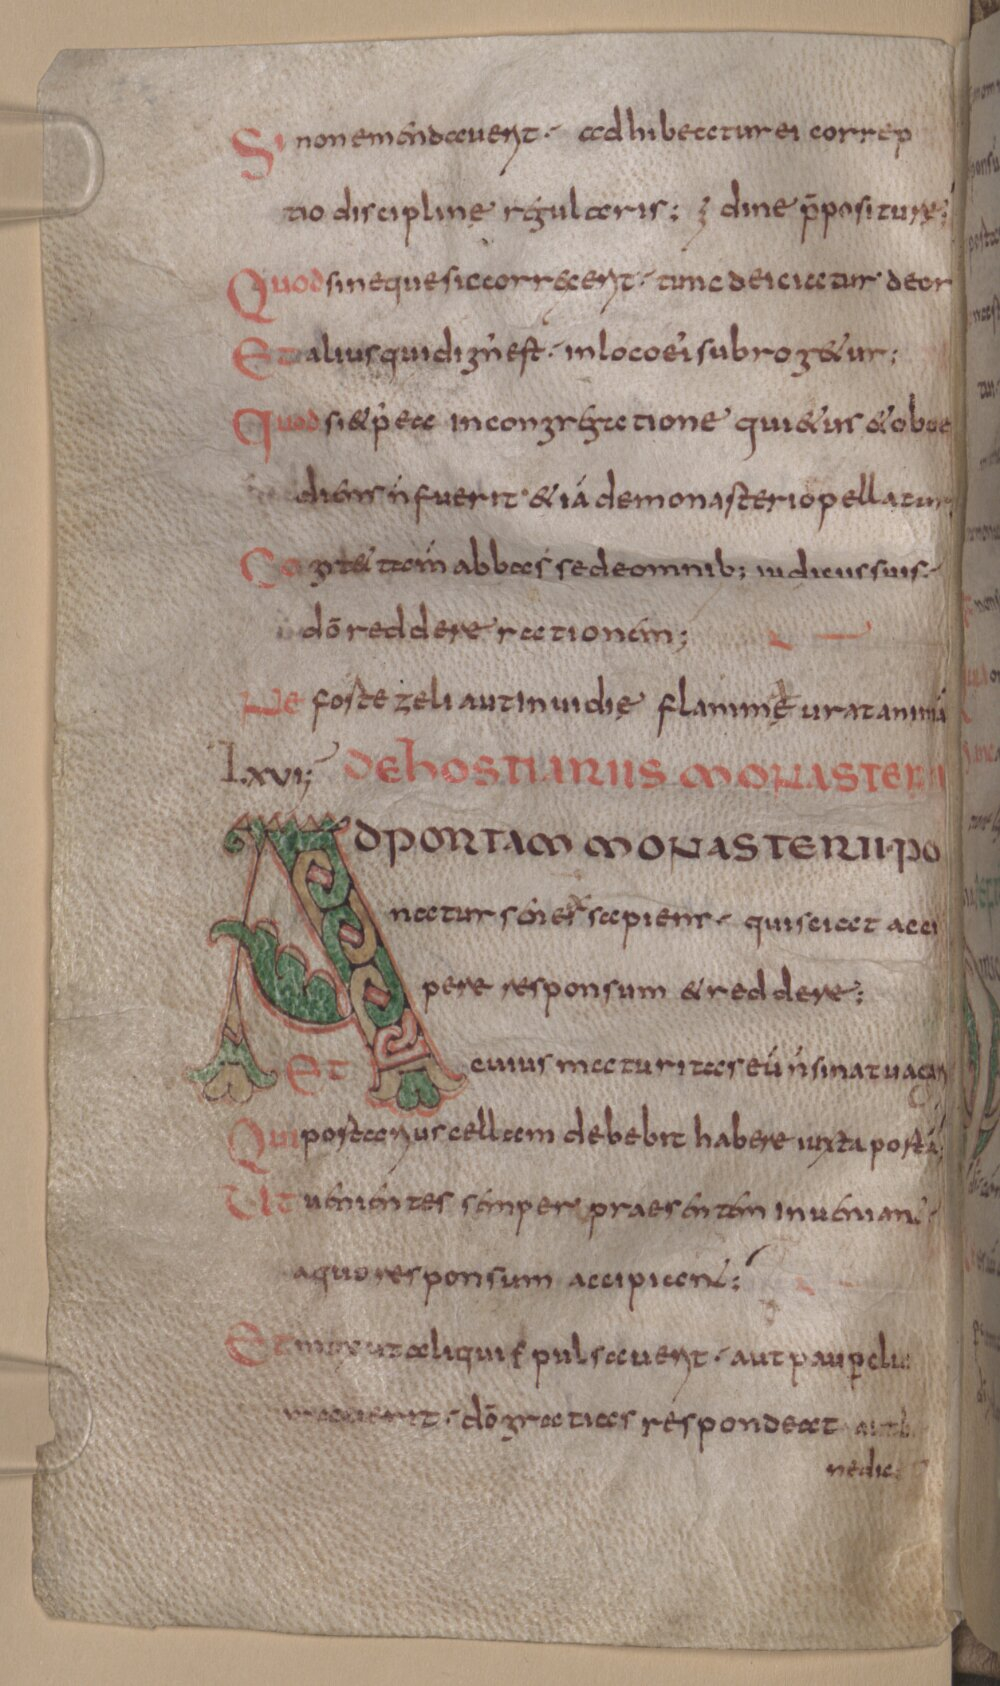 Si non emendaverit· adhibeatur ei correp
tio disciplinę regularis; & dine p̄positurę;
Quod si neque sic correxerit· tunc deiciatur de or
Et alius qui dign' est· in loco ei' subrog&ur;
Quod si & p' ea in congregatione qui&us & oboe
diens n̄ fuerit & iā de monasterio pellatur
Cogit& tam̄ abbas se de omnib; iudiciis suis·
dō reddere rationem;
Ne forte zeli aut invidię flamme urat animā
Lxvi; De hostiariis monasterii
Ad portam monasterii· po
natur senex sapiens· qui sciat acci
pere responsum & reddere;
Et cuius maturitas eū n̄ sinat vagari
Qui portarius cellam debebit habere iuxta portā;
Ut venientes semper praesentem inveniant·
a quo responsum accipiant;
Et mox ut aliquis pulsaverit· aut pauper cla
maverit· dō gratias respondeat aut be
nedic